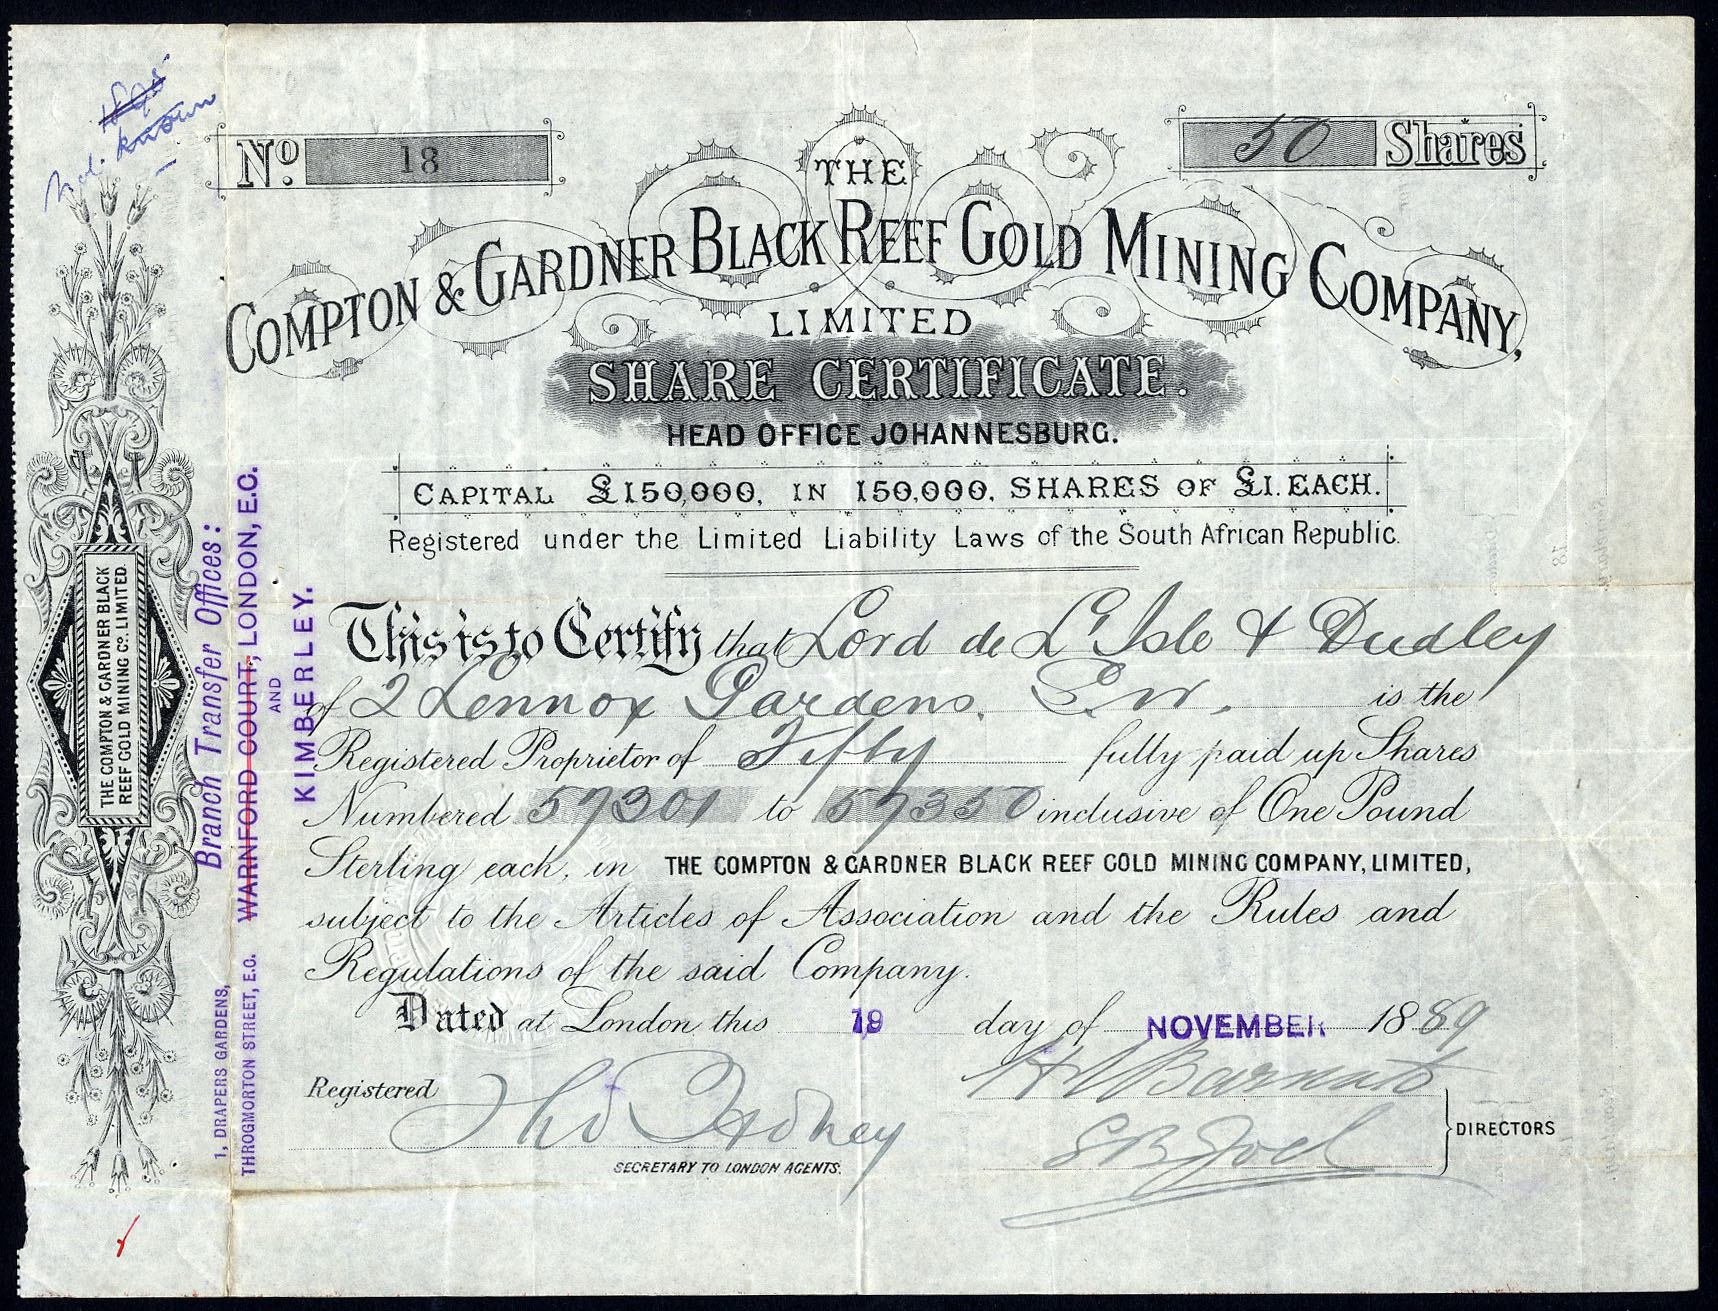 not known
No. 18
50 Shares
THE
COMPTON & GARDNER BLACK REEF GOLD MINING COMPANY,
LIMITED
SHARE CERTIFICATE.
HEAD OFFICE JOHANNESBURG.
CAPITAL £150,000, IN 150,000, SHARES OF £1. EACH.
Registered under the Limited Liability Laws of the South African Republic.
This is to Certify that Lord de L'Isle & Dudley
of 2 Lennox Gardens. S.W. is the
Registered Proprietor of Fifty fully paid up Shares
Numbered 57301 to 57350 inclusive of One Pound
Sterling each, in THE COMPTON & GARDNER BLACK REEF GOLD MINING COMPANY, LIMITED,
subject to the Articles of Association and the Rules and
Regulations of the said Company.
Dated at London this 19 day of NOVEMBER 1889
Registered
SECRETARY TO LONDON AGENTS.
H Barnato
S B Joel
DIRECTORS
THE COMPTON & GARDNER BLACK
REEF GOLD MINING Co. LIMITED.
Branch Transfer Offices:
WARNFORD COURT, LONDON, E.C.
AND
KIMBERLEY.
1, DRAPERS GARDENS,
THROGMORTON STREET, E.C.